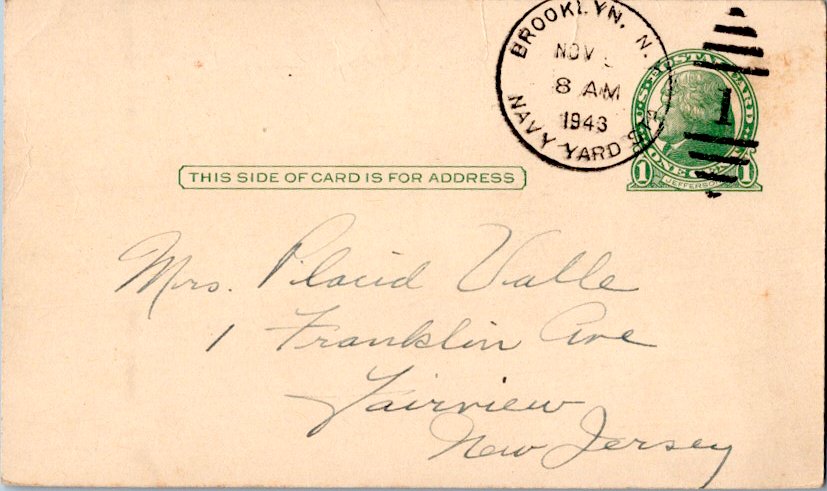 BROOKLYN, N.
NOV
8 AM
1943
NAVY YARD
1
U.S. POSTAL CARD
1 ONE 1
JEFFERSON
THIS SIDE OF CARD IS FOR ADDRESS
Mrs. Placid Valle
1 Franklin Ave
Fairview
New Jersey